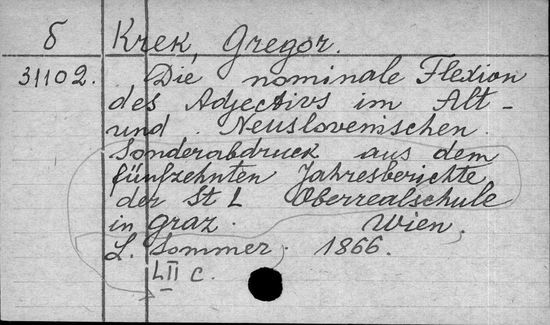 б Krek, Gregor.
31102. Die nominale Flexion
des Adjectivs im Alt-
und Neuslovenischen.
Sonderabdruck aus dem
fünfzehnten Jahresberichte
der St L Oberrealschule
in Graz. Wien,
L. Sommer, 1866.
LII c.